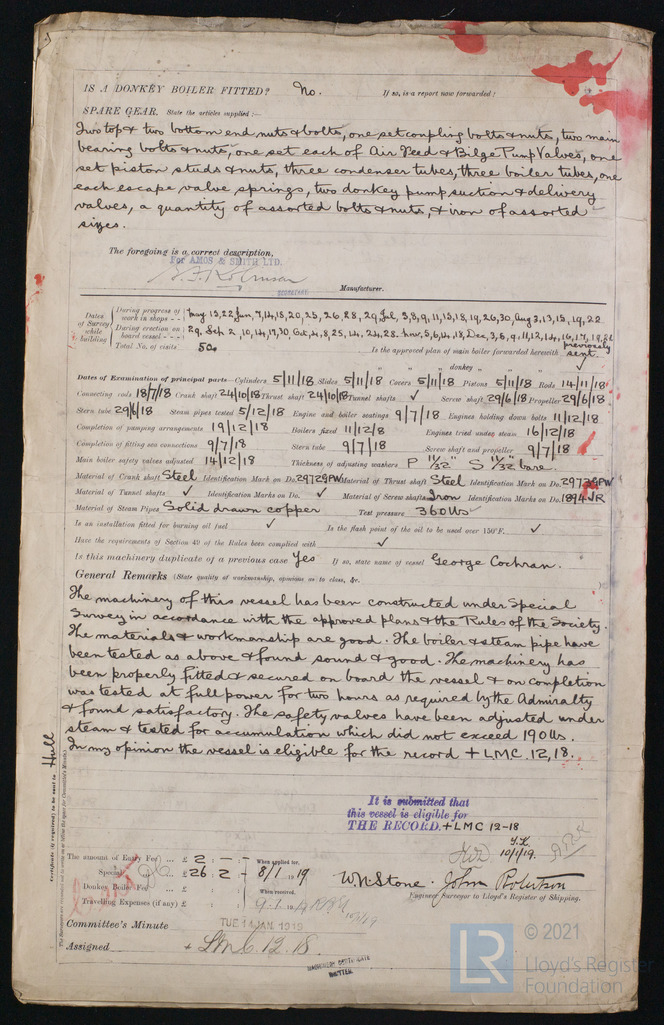 IS A DONKEY BOILER FITTED? No. If so, is a report now forwarded?
SPARE GEAR. State the articles supplied:—
Two top & two bottom end nuts & bolts, one set coupling bolts & nuts, two main
bearing bolts & nuts, one set each of Air Feed & Bilge Pump Valves, one
set piston studs & nuts, three condenser tubes, three boiler tubes, one
each escape valve springs, two donkey pump suction & delivery
valves, a quantity of assorted bolts & nuts, & iron of assorted
sizes.
The foregoing is a correct description,
For AMOS & SMITH LTD.
SECRETARY Manufacturer.
Dates of Survey while building
During progress of work in shops - - May 15, 22, Jun, 7, 14, 18, 20, 25, 26, 28, 29 Jul, 3, 8, 9, 11, 15, 18, 19, 26, 30, Aug 2, 13, 15, 19, 22
During erection on board vessel - - - 29, Sep 2, 10, 14, 17, 30, Oct, 4, 8, 25, 14, 24, 28. Nov, 5, 6, 14, 18, Dec, 3, 5, 9, 11, 12, 14, 16, 17, 19, 21
Total No. of visits 50 Is the approved plan of main boiler forwarded herewith previously sent.
" " " donkey " " " ✓
Dates of Examination of principal parts—Cylinders 5/11/18 Slides 5/11/18 Covers 5/11/18 Pistons 5/11/18 Rods 14/11/18
Connecting rods 18/7/18 Crank shaft 24/10/18 Thrust shaft 24/10/18 Tunnel shafts ✓ Screw shaft 29/6/18 Propeller 29/6/18
Stern tube 29/6/18 Steam pipes tested 5/12/18 Engine and boiler seatings 9/7/18 Engines holding down bolts 11/12/18
Completion of pumping arrangements 19/12/18 Boilers fixed 11/12/18 Engines tried under steam 16/12/18
Completion of fitting sea connections 9/7/18 Stern tube 9/7/18 Screw shaft and propeller 9/7/18
Main boiler safety valves adjusted 14/12/18 Thickness of adjusting washers P 11/32" S 11/32 bare.
Material of Crank shaft Steel Identification Mark on Do. 2972GPW Material of Thrust shaft Steel Identification Mark on Do. 2973GPW
Material of Tunnel shafts ✓ Identification Marks on Do. ✓ Material of Screw shafts Iron Identification Marks on Do. 1894JR
Material of Steam Pipes Solid drawn copper Test pressure 360 lbs ✓
Is an installation fitted for burning oil fuel ✓ Is the flash point of the oil to be used over 150°F. ✓
Have the requirements of Section 49 of the Rules been complied with ✓
Is this machinery duplicate of a previous case Yes If so, state name of vessel George Cochran.
General Remarks (State quality of workmanship, opinions as to class, &c.
The machinery of this vessel has been constructed under Special
Survey in accordance with the approved plans & the Rules of the Society.
The materials & workmanship are good. The boiler & steam pipe have
been tested as above & found sound & good. The machinery has
been properly fitted & secured on board the vessel & on completion
was tested at full power for two hours as required by the Admiralty
& found satisfactory. The safety valves have been adjusted under
steam & tested for accumulation which did not exceed 190 lbs.
In my opinion the vessel is eligible for the record + LMC. 12,18.
Certificate (if required) to be sent to Hull
It is submitted that
this vessel is eligible for
THE RECORD. + LMC 12-18
10/1/19.
The amount of Entry Fee ... £ 2 : - : - When applied for,
Special ... £ 26 : 2 : - 8/1/19
Donkey Boiler Fee ... £ : : When received,
Travelling Expenses (if any) £ : :
W.R. Stone. John Robertson
Engineer Surveyor to Lloyd's Register of Shipping.
Committee's Minute TUE 14 JAN 1919
Assigned + LMC. 12.18
MACHINERY CERTIFICATE
WRITTEN
LR
© 2021
Lloyd's Register
Foundation